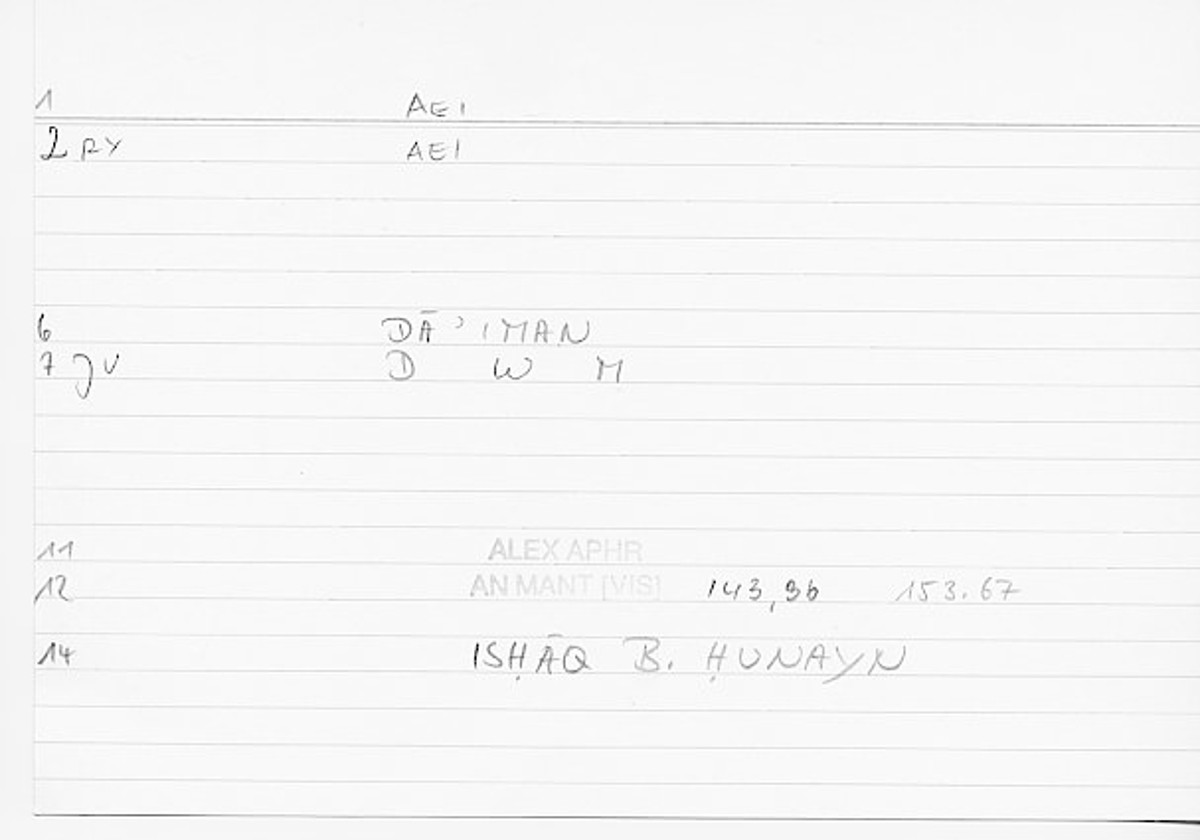 1 AEI
2 PY AEI
6 DĀʾIMAN
7 JV D W M
11 ALEX APHR
12 AN MANT [VIS] 143,36 153.67
14 ISḤĀQ B. ḤUNAYN